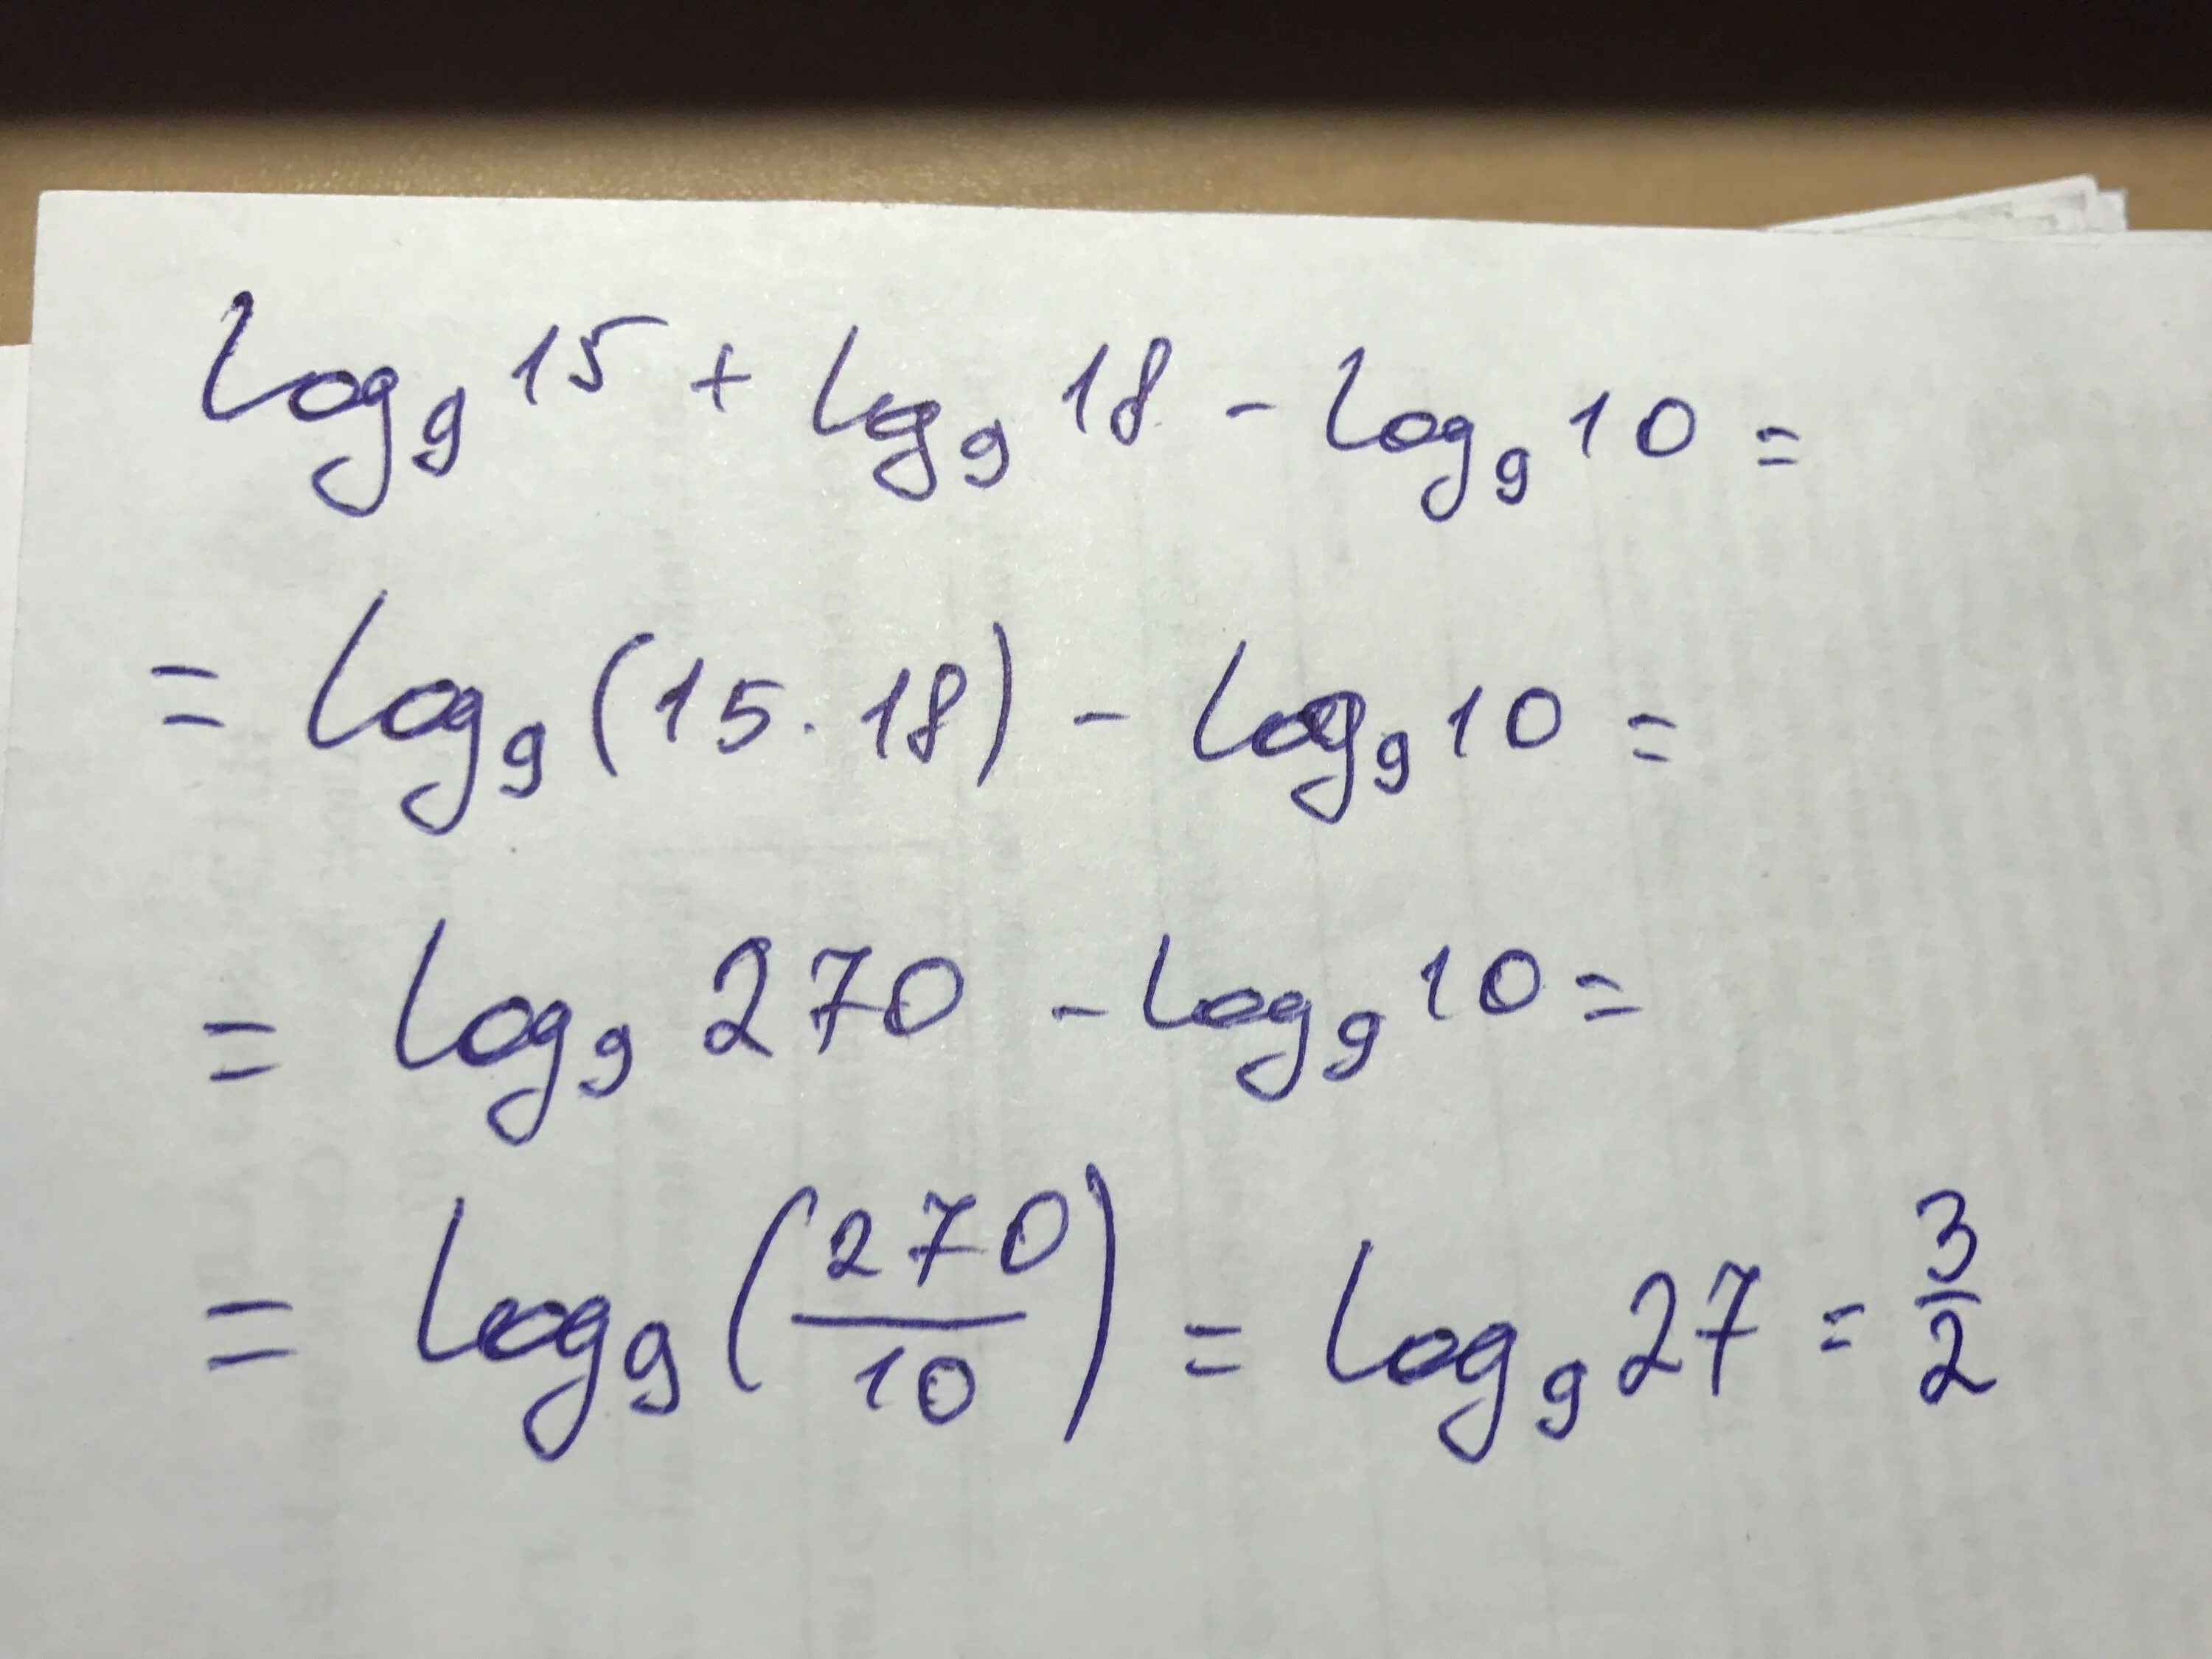 log₉ 15 + log₉ 18 - log₉ 10 =
= log₉ (15 · 18) - log₉ 10 =
= log₉ 270 - log₉ 10 =
= log₉ (270/10) = log₉ 27 = 3/2